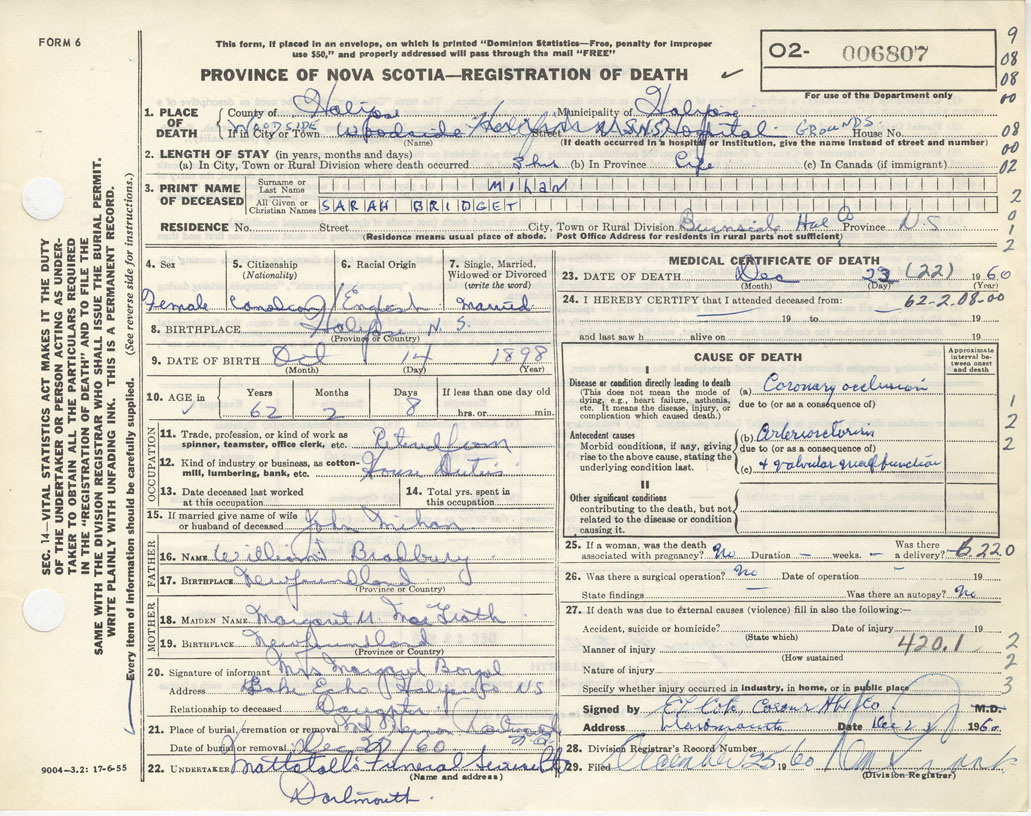 FORM 6
This form, if placed in an envelope, on which is printed "Dominion Statistics—Free, penalty for improper
use $50," and properly addressed will pass through the mail "FREE"
PROVINCE OF NOVA SCOTIA—REGISTRATION OF DEATH ✓
O2- 006807
For use of the Department only
9
08
08
00
08
00
02
2
0
1
2
1. PLACE OF DEATH
County of Halifax Municipality of Halifax
If in City or Town WOODSIDE Woodside Street N.S.N.S Hospital GROUNDS House No.
(Name) (If death occurred in a hospital or institution, give the name instead of street and number)
2. LENGTH OF STAY (in years, months and days)
(a) In City, Town or Rural Division where death occurred (b) In Province Life (c) In Canada (if immigrant)
3. PRINT NAME OF DECEASED
Surname or Last Name MIHAN
All Given or Christian Names SARAH BRIDGET
RESIDENCE No. Street City, Town or Rural Division Burnside Hal Co Province N S
(Residence means usual place of abode. Post Office Address for residents in rural parts not sufficient)
4. Sex
Female
5. Citizenship
(Nationality)
Canadian
6. Racial Origin
English
7. Single, Married, Widowed or Divorced
(write the word)
Married
8. BIRTHPLACE Halifax N. S.
(Province or Country)
9. DATE OF BIRTH Oct 14 1898
(Month) (Day) (Year)
10. AGE in
Years Months Days If less than one day
62 2 8 hrs. or min.
OCCUPATION
11. Trade, profession, or kind of work as
spinner, teamster, office clerk, etc.
12. Kind of industry or business, as cotton-
mill, lumbering, bank, etc. House Duties
13. Date deceased last worked
at this occupation
14. Total yrs. spent in
this occupation
15. If married give name of wife
or husband of deceased John Mihan
FATHER
16. NAME William Bradbury
17. BIRTHPLACE Newfoundland
(Province or Country)
MOTHER
18. MAIDEN NAME Margaret M.
19. BIRTHPLACE Newfoundland
(Province or Country)
20. Signature of informant Mrs Margaret
Address Lake Echo Halifax Co NS
Relationship to deceased Daughter
21. Place of burial, cremation or removal
Date of burial or removal Dec /60
22. UNDERTAKER Mattatall's Funeral Service
(Name and address)
Dartmouth.
9004—3.2: 17-6-55
MEDICAL CERTIFICATE OF DEATH
23. DATE OF DEATH Dec 23 (22) 1960
(Month) (Day) (Year)
24. I HEREBY CERTIFY that I attended deceased from:
62-2.08-00
19 to 19
and last saw h alive on 19
CAUSE OF DEATH
Approximate interval between onset and death
I
Disease or condition directly leading to death
(This does not mean the mode of
dying, e.g., heart failure, asthenia,
etc. It means the disease, injury, or
complication which caused death.)
(a) Coronary occlusion
due to (or as a consequence of)
Antecedent causes
Morbid conditions, if any, giving
rise to the above cause, stating the
underlying condition last.
(b)
due to (or as a consequence of)
(c) + valvular
II
Other significant conditions
contributing to the death, but not
related to the disease or condition
causing it.
1
2
2
25. If a woman, was the death
associated with pregnancy? No Duration — weeks. Was there
a delivery? 6220
26. Was there a surgical operation? No Date of operation — 19
State findings — Was there an autopsy? No
27. If death was due to external causes (violence) fill in also the following:—
Accident, suicide or homicide? Date of injury 19
(State which)
Manner of injury 420.1
(How sustained)
Nature of injury
Specify whether injury occurred in industry, in home, or in public place
2
2
3
Signed by M.D.
Address Dartmouth Date Dec 23 1960
28. Division Registrar's Record Number
29. Filed December 23 1960
(Division Registrar)
SEC. 14—VITAL STATISTICS ACT MAKES IT THE DUTY
OF THE UNDERTAKER OR PERSON ACTING AS UNDER-
TAKER TO OBTAIN ALL THE PARTICULARS REQUIRED
IN THE "REGISTRATION OF DEATH" AND FILE THE
SAME WITH THE DIVISION REGISTRAR WHO SHALL ISSUE THE BURIAL PERMIT.
WRITE PLAINLY WITH UNFADING INK. THIS IS A PERMANENT RECORD.
Every item of information should be carefully supplied. (See reverse side for instructions.)